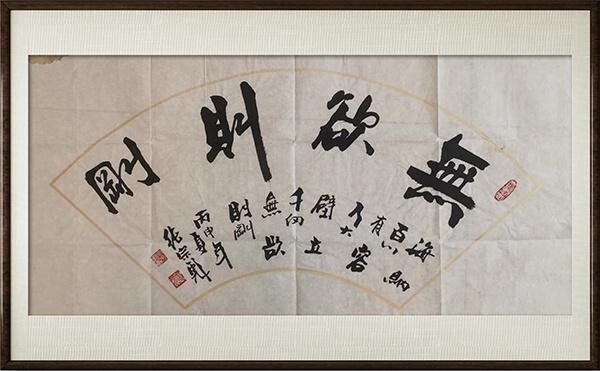 無欲則剛
海納
百川
有容
乃大
壁立
千仞
無欲
則剛
丙申年
夏
張宗